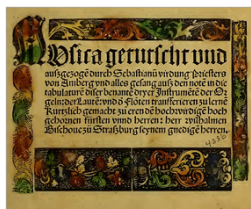 Musica getutscht und
außgezogē durch Sebastianū virdung Priesters
von Amberg und alles gesang auß den notē in die
tabulaturē diser benantē dryer Instrumētē der Or
geln: der Lautē: und der Flöten transferieren zu lernē
Kurtzlich gemacht zu eren dē hochwirdigē hoch
gebornen fürsten unnd herren: herr wilhalmen
Bischove zu Straßburg seynem gnedigē herren.